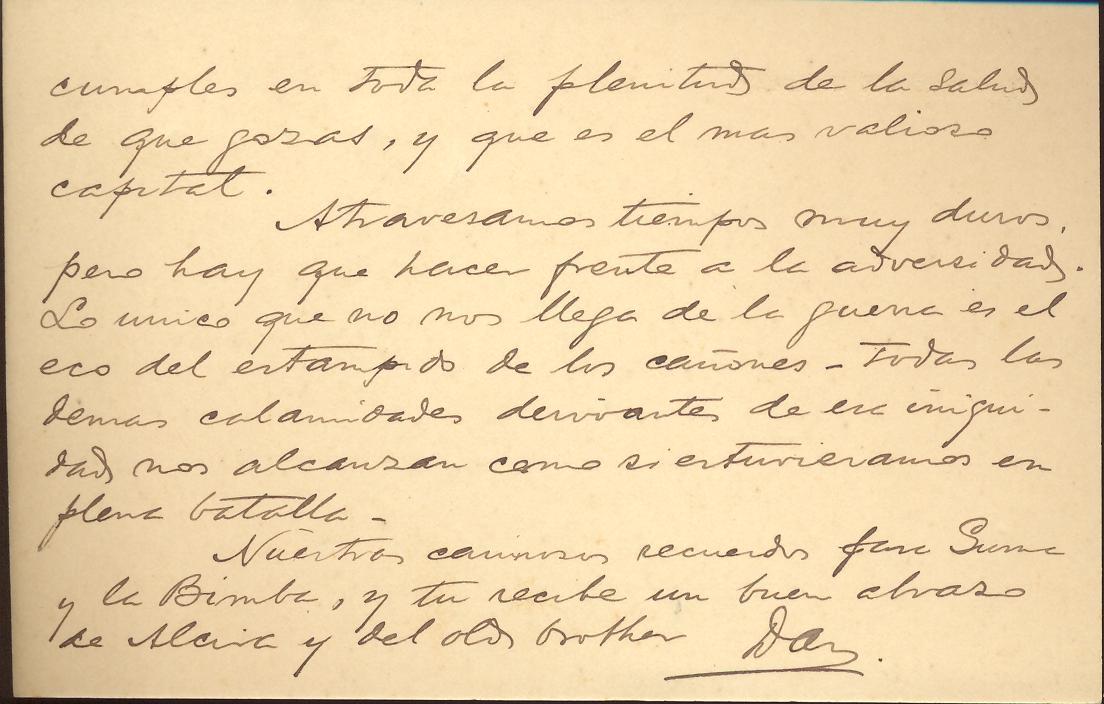 cumples en toda la plenitud de la salud
de que gozas, y que es el mas valioso
capital.
Atravesamos tiempos muy duros,
pero hay que hacer frente a la adversidad.
Lo unico que no nos llega de la guerra es el
eco del estampido de los cañones - Todas las
demas calamidades derivantes de esa iniqui-
dad nos alcanzan como si estuvieramos en
plena batalla -
Nuestros cariñosos recuerdos para
y la Bimba, y tu recibe un buen abrazo
de Alcira y del old brother